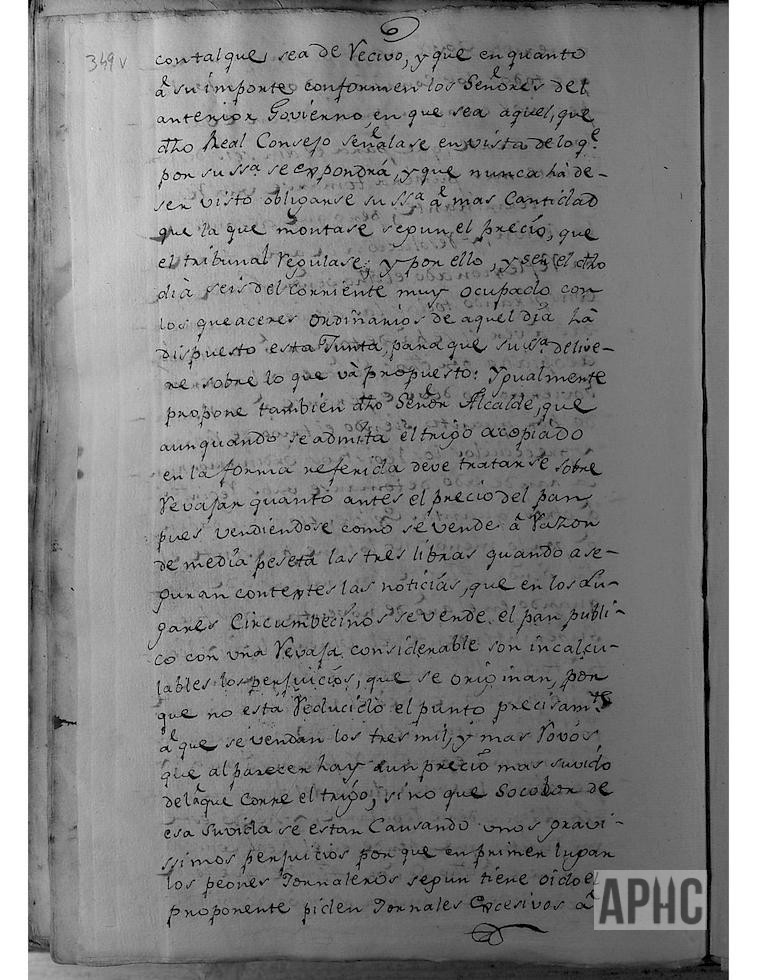 349 v
contalque, sea de Recivo, y que en quanto
â su importe conformen los Señores del
anterior Govierno en que sea aquel, que
dho Real Consejo señalase en vista de lo q.e
por su ssa se expondrá, y que nunca hà de-
ser visto obligarse su ssa â mas Cantidad
que la que montase segun el precio, que
el tribunal Regulase; y por ello, y ser el dho
dia seis del corriente muy ocupado con
los queaceres ordinarios de aquel dia hà
dispuesto esta Junta, para que su ssa. delive-
re sobre lo que và propuesto: Ygualmente
propone tambien dho Señor Alcalde, que
aunquando se admita el trigo acopiado
en la forma referida deve tratarse sobre
Revajar quanto antes el precio del pan,
pues vendiendose como se vende â Razon
de media peseta las tres libras quando ase-
guran contextes las noticias, que en los Lu-
gares Circumbecinos se vende el pan publi-
co con una Revaja considerable son incalcu-
lables los perjuicios, que se originan, por
que no esta Reducido el punto precisam.te
â que se vendan los tres mil, y mas Rovos
que al parecer hay â un precio mas suvido
del a que corre el trigo, sino que So color de
esa suvida se estan Causando unos gravi-
ssimos perjuicios por que en primer lugar
los peones Jornaleros segun tiene oido el
proponente piden Jornales Excesivos â
APHC